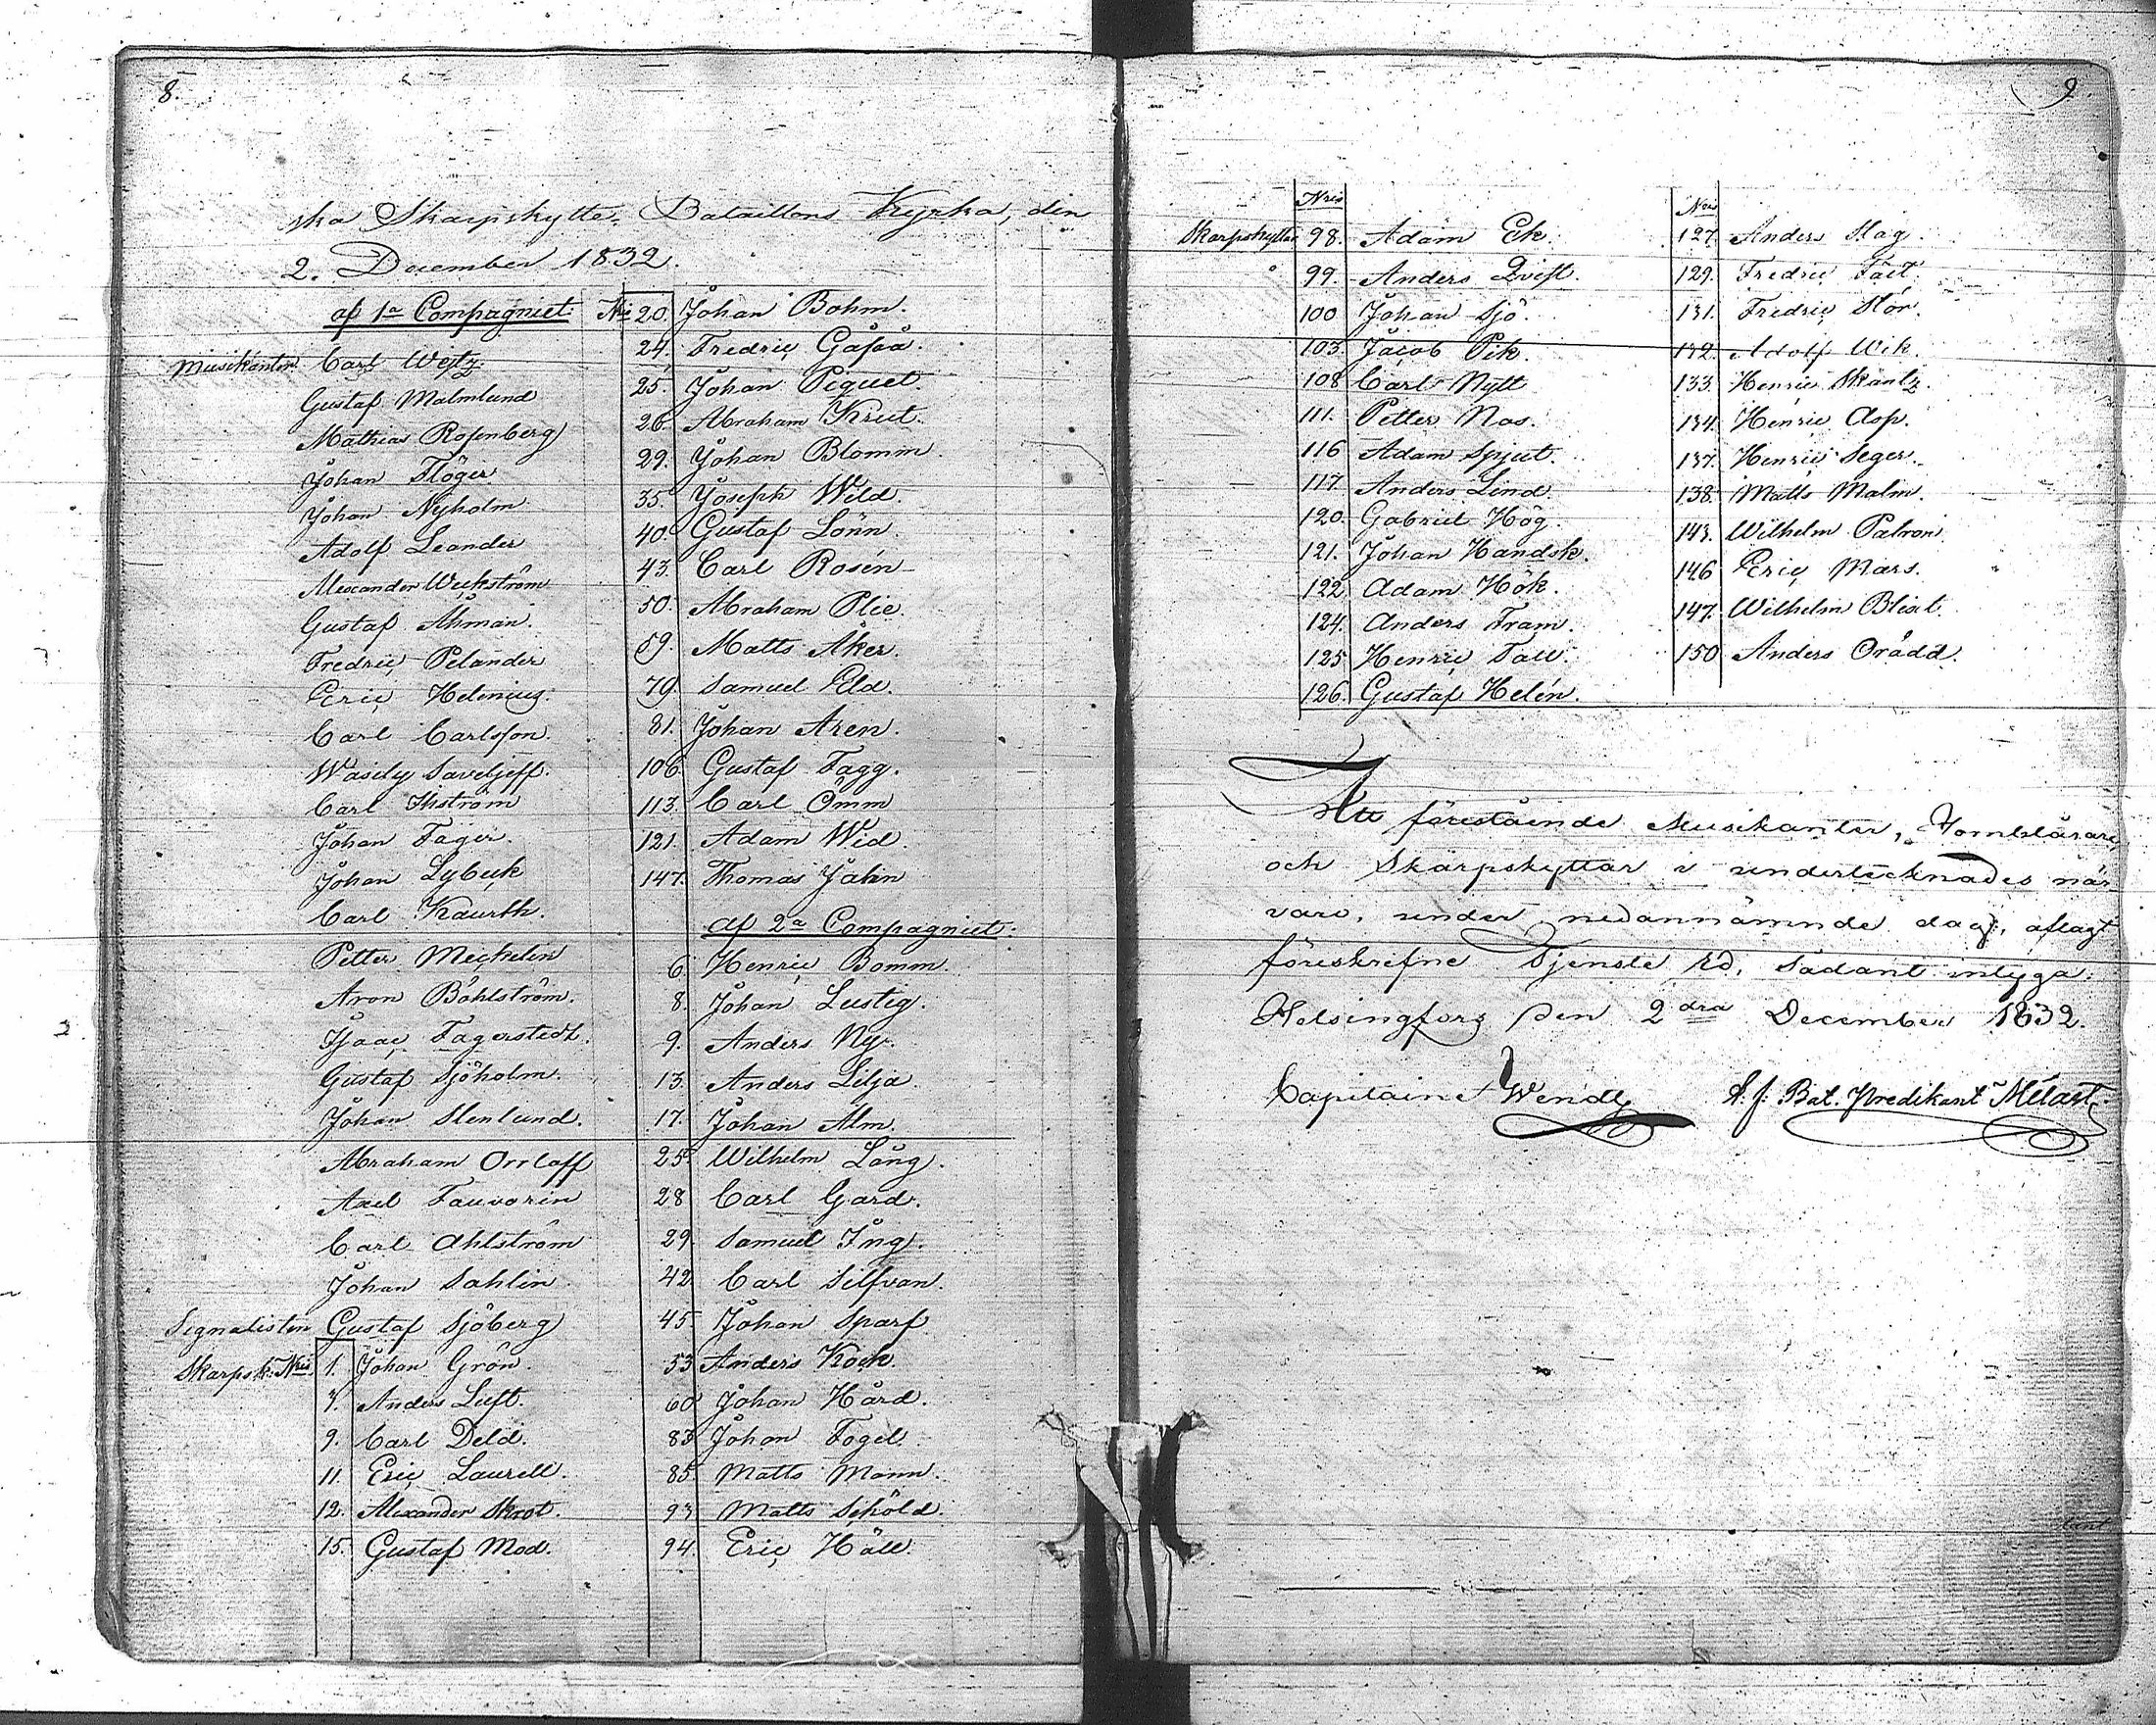 8.
ska Skarpskytte-Bataillons Kyrka, den
2. December 1832.
af 1a Compagniet.
Musikanter Carl Weitz.
Gustaf Malmlund
Mathias Rosenberg
Johan Flöger
Johan Nyholm
Adolf Leander
Alexander Weckström
Gustaf Åhman.
Fredric Pelander
Eric Helenius.
Carl Carlsson.
Wasily Saveljeff.
Carl Ihström
Johan Fager.
Johan Lybeck
Carl Kaurth.
Petter Mechelin
Aron Böhlström.
Isaac Fagerstedt.
Gustaf Sjöholm.
Johan Stenlund.
Abraham Orrloff
Axel Fauvorin
Carl Ahlström
Johan Sahlin
Signalisten Gustaf Sjöberg
Skarpsk: Nris 1. Johan Grön.
7. Anders Luft.
9. Carl Deld.
11. Eric Laurell.
12. Alexander Skrot.
15. Gustaf Mod.
Nris 20. Johan Bohm.
24. Fredric
25. Johan Piquet
26. Abraham Krut.
29. Johan Blomm.
35. Joseph Wild.
40. Gustaf Lönn.
43. Carl Rosén
50. Abraham Plie.
59. Matts Åker.
79. Samuel Eld.
81. Johan Aren.
106. Gustaf Fagg.
113. Carl Omm
121. Adam Wid.
147. Thomas Jahn
af 2a Compagniet.
6. Henric Bomm.
8. Johan Lustig.
9. Anders Ny.
13. Anders Lilja.
17. Johan Alm.
25. Wilhelm Lång.
28. Carl Gard.
29. Samuel Ing.
42. Carl Silfvan.
45. Johan Sparf
53. Anders Kock.
60. Johan Hård.
83. Johan Fogel.
85. Matts Mann.
93. Matts Schöld.
94. Eric Häll.
9
Nris
Skarpskyttar 98. Adam Ek.
99. Anders Qvist.
100 Johan Sjö.
103. Jacob Pik.
108 Carl Nytt
111. Petter Nas.
116 Adam Spjut.
117. Anders Lind.
120. Gabriel Hög.
121. Johan Handsk.
122. Adam Hök.
124. Anders Fram.
125. Henric Fall.
126. Gustaf Helén.
Nris
127. Anders Slag.
129. Fredric Fält.
131. Fredric Stör.
132. Adolf Wik.
133. Henric Skantz.
134. Henric Asp.
137. Henric Seger.
138. Matts Malm.
143. Wilhelm Patron.
146 Eric Mars.
147. Wilhelm Blixt.
150 Anders Orådd.
Att förestående Musikanter, Hornblåsare
och Skarpskyttar i undertecknades när-
varo, under nedannämnde dag, aflagt
föreskrefne Tjenste Ed, Sådant intyga.
Helsingfors den 2dra December 1832.
Capitaine Wendt
t.f. Bat. Predikant Melart.